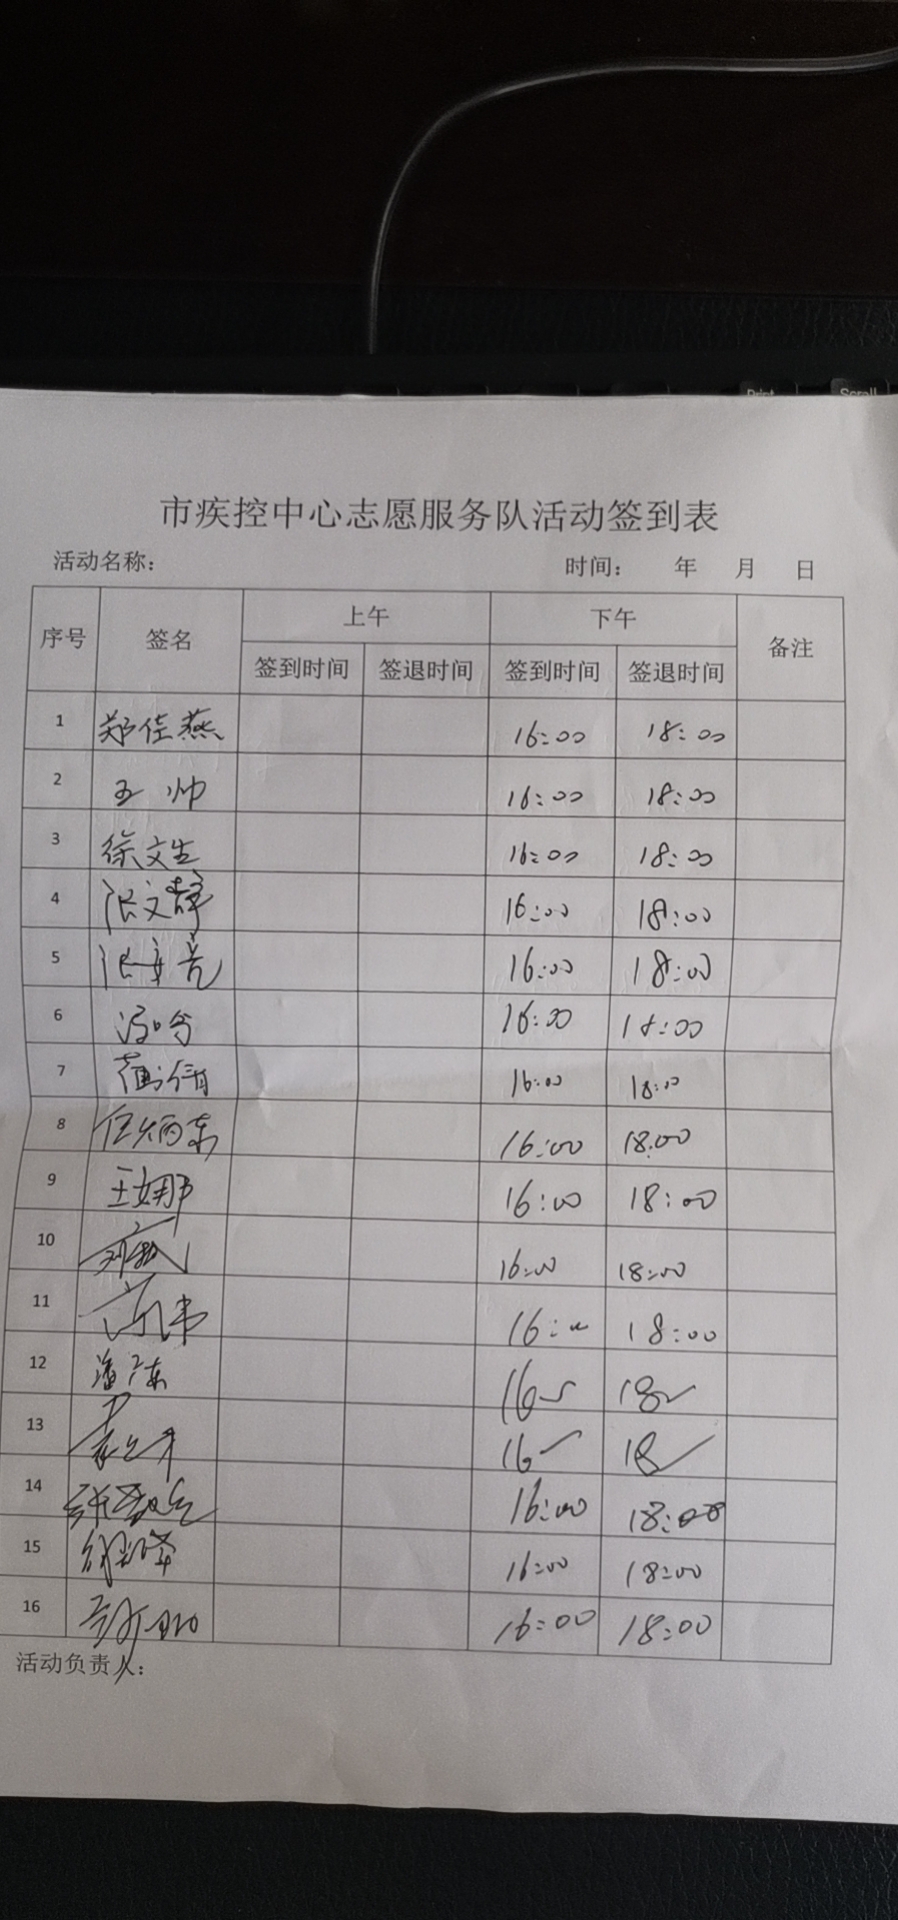 Print
Scroll
市疾控中心志愿服务队活动签到表
活动名称： 时间： 年 月 日
序号 签名 上午 下午 备注
签到时间 签退时间 签到时间 签退时间
1 郑佳燕 16:00 18:00
2 王帅 16:00 18:00
3 徐文生 16:00 18:00
4 张文静 16:00 18:00
5 16:00 18:00
6 16:00 18:00
7 16:00 18:00
8 任炳东 16:00 18:00
9 王娜 16:00 18:00
10 16:00 18:00
11 16:00 18:00
12 潘广东 16 18
13 16 18
14 16:00 18:00
15 16:00 18:00
16 16:00 18:00
活动负责人：